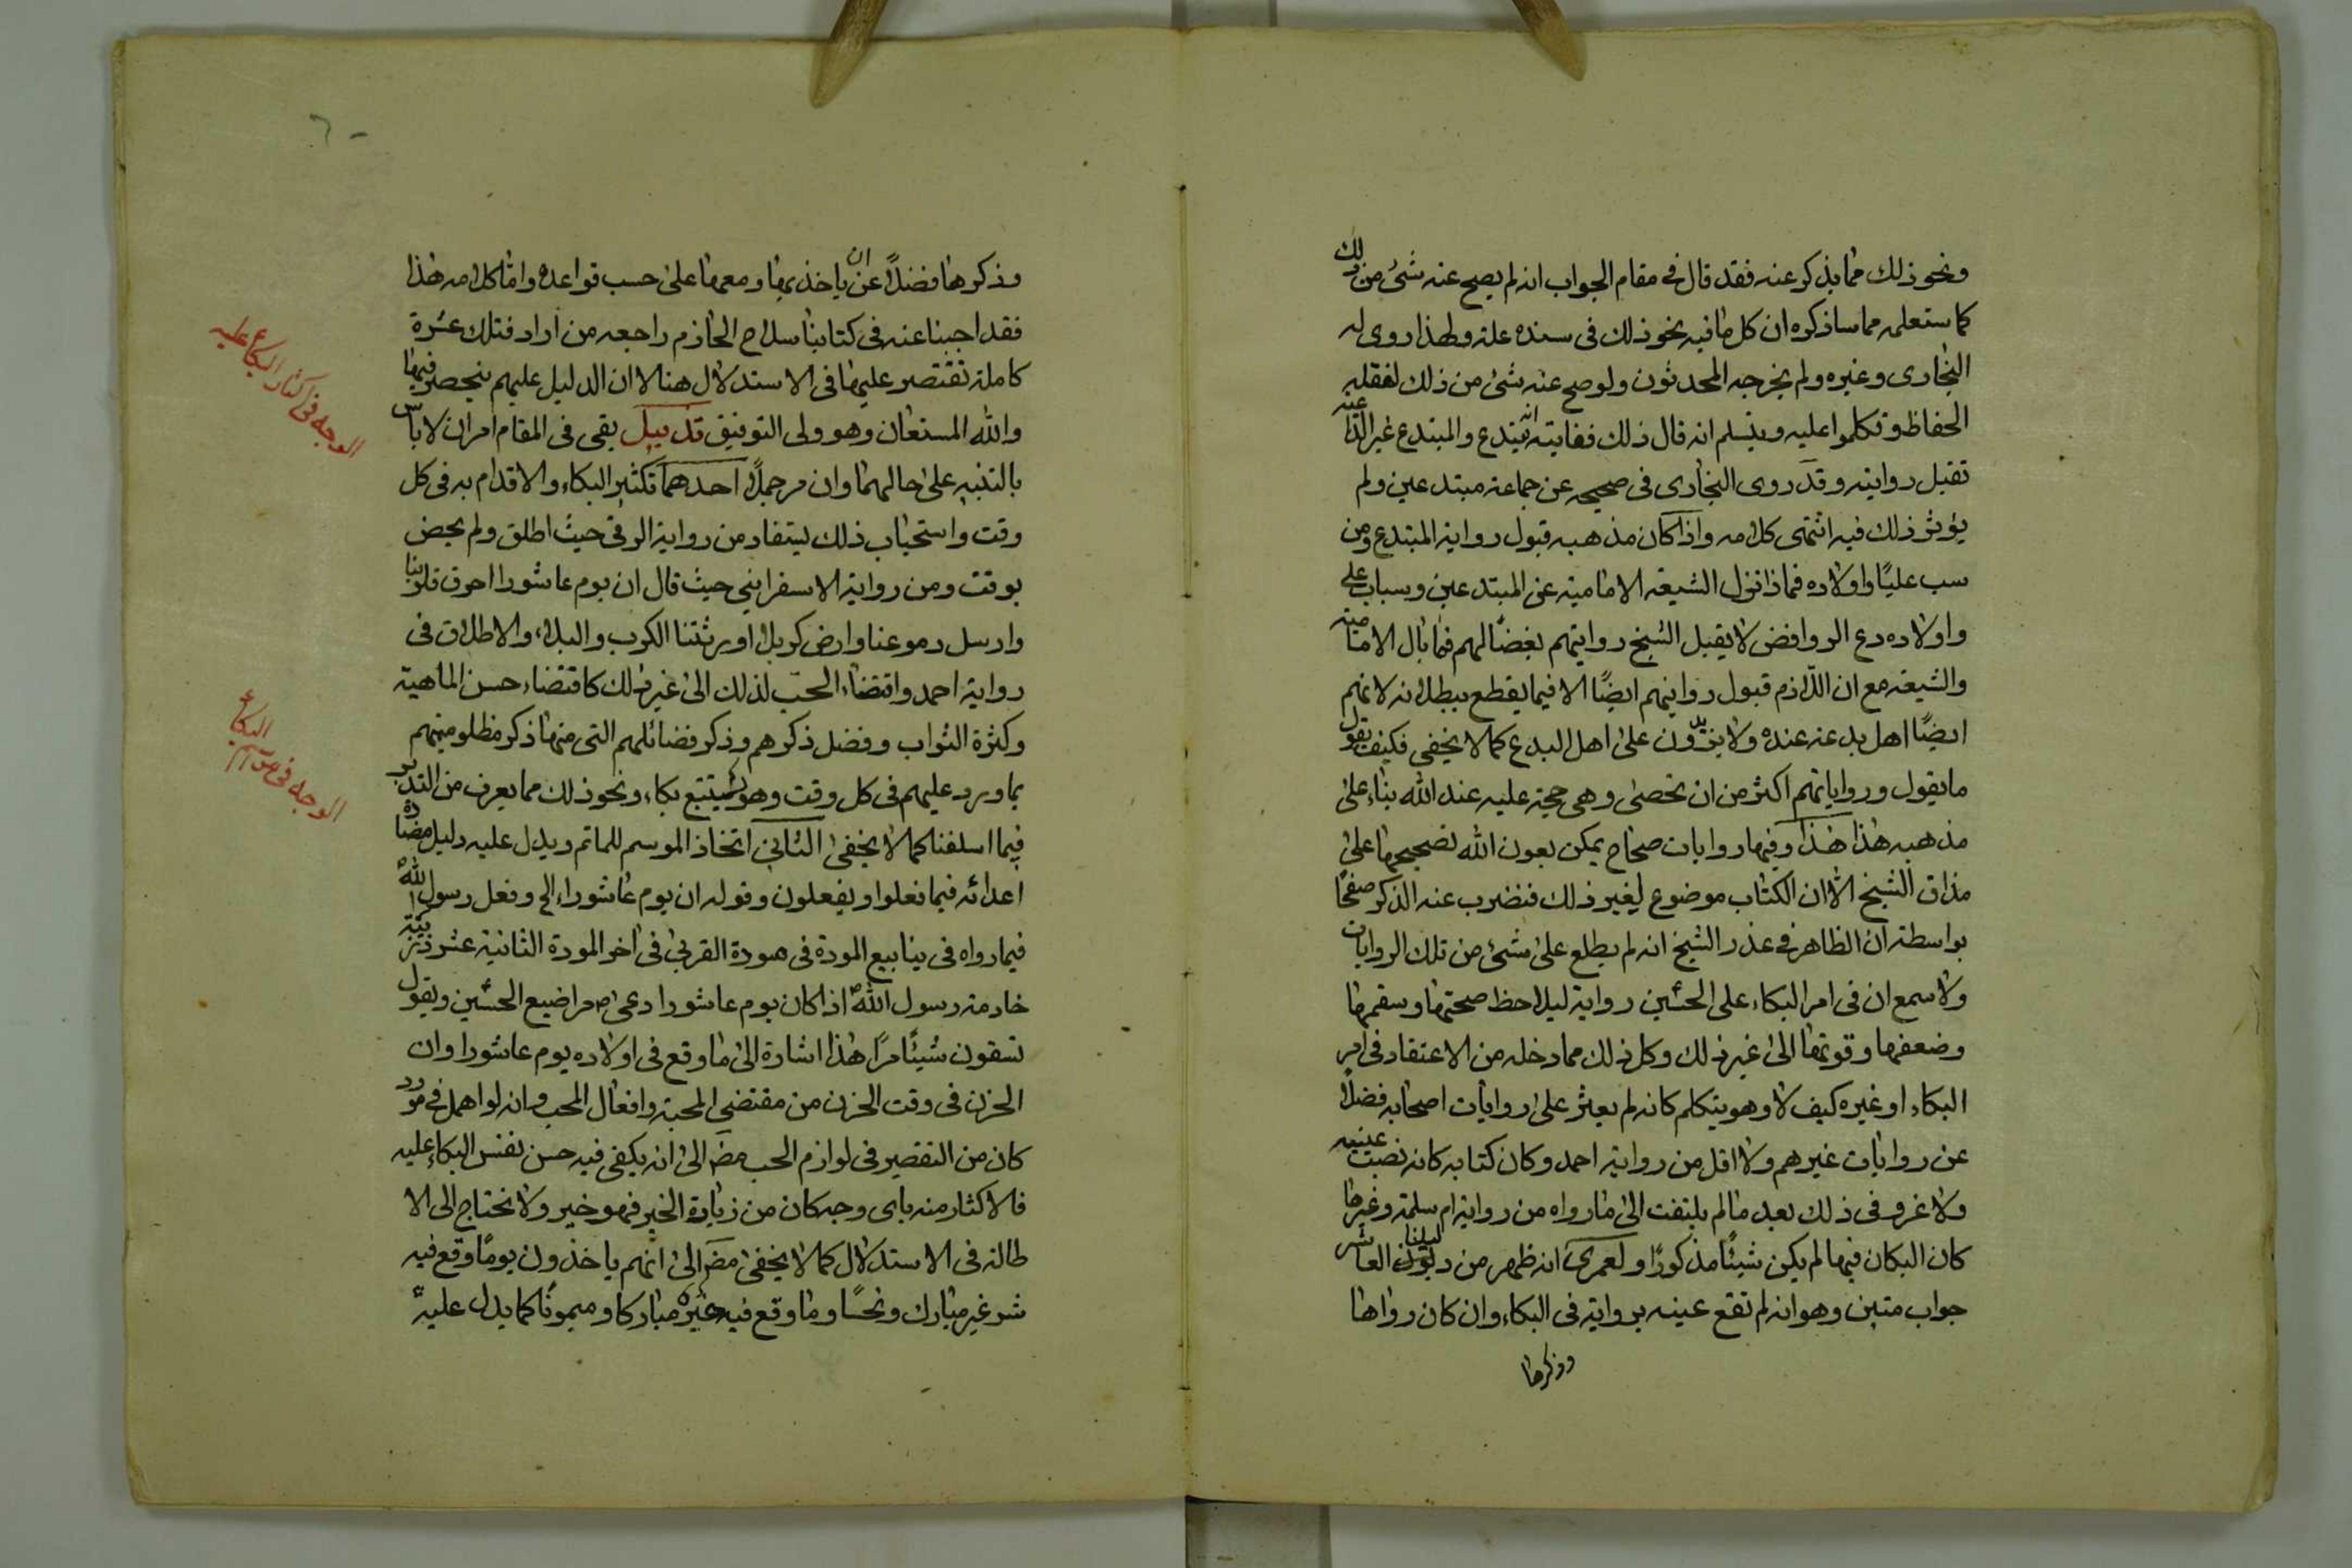 ونحو ذلك مما يذكر عنه فقد قال في مقام الجواب انه لم يصح عنه شئ من ذلك
كما ستعلمه مما ساذكره ان كل ما فيه نحو ذلك في سنده علة ولهذا روى له
البخارى وغيره ولم يخرجه المحدثون ولو صح عنه شئ من ذلك لنقله
الحفاظ وتكلموا عليه وبتسلم انه قال ذلك فغايته انه مبتدع والمبتدع غير الداعية
تقبل روايته وقد روى البخارى في صحيحه عن جماعة مبتدعين ولم
يؤثر ذلك فيه انتهى كلامه واذا كان مذهبه قبول رواية المبتدع ومن
سب عليًا واولاده فماذا نزل الشيعة الامامية عن المبتدعين وسباب علي
واولاده دع الروافض لا يقبل الشيخ روايتهم بغضًا لهم فما بال الامامية
والشيعة مع ان اللازم قبول روايتهم ايضًا الا فيما يقطع ببطلانه لانهم
ايضًا اهل بدعة عنده ولا يزيدون على اهل البدع كما لا يخفى فكيف يقول
ما يقول ورواياتهم اكثر من ان تحصى وهى حجة عليه عند الله بناء على
مذهبه هذا هذا وفيها روايات صحاح يمكن بعون الله تصحيحها على
مذاق الشيخ الا ان الكتاب موضوع لغير ذلك فنضرب عنه الذكر صفحًا
بواسطة ان الظاهر في عذر الشيخ انه لم يطلع على شئ من تلك الروايات
ولا سمع ان في امر البكاء على الحسين رواية ليلاحظ صحتها وسقمها
وضعفها وقوتها الى غير ذلك وكل ذلك مما دخله من الاعتقاد في امر
البكاء او غيره كيف لا وهو يتكلم كانه لم يعثر على روايات اصحابه فضلًا
عن روايات غيرهم ولا اقل من رواية احمد وكان كتابه كانه نصب عينيه
ولا غرو في ذلك بعد ما لم يلتفت الى ما رواه من رواية ام سلمة وغيرها
كان البكاء فيها لم يكن شيئًا مذكورًا ولعمرى انه ظهر من دليلنا العاشر
جواب متين وهو انه لم تقع عينه برواية في البكاء وان كان رواها
وذكرها
وذكرها فضلًا عن ان ياخذ بها ومعها على حسب قواعده واما كلامه هذا
فقد اجبنا عنه في كتابنا سلاح الحازم راجعه من اراد فتلك عشرة
كاملة نقتصر عليها في الاستدلال هنا لا ان الدليل عليهم ينحصر فيها
والله المستعان وهو ولى التوفيق تذييل بقى في المقام امران لا باس
بالتنبيه على حالهما وان مر جملًا احدهما تكثير البكاء والاقدام به في كل
وقت واستحباب ذلك يستفاد من رواية الرقى حيث اطلق ولم يخص
بوقت ومن رواية الاسفراينى حيث قال ان يوم عاشورا احرق قلوبنا
وارسل دموعنا وارض كربلا اورثتنا الكرب والبلاء والاطلاق في
رواية احمد واقتضاء الحب لذلك الى غير ذلك كاقتضاء حسن الماهية
وكثرة الثواب وفضل ذكرهم وذكر فضائلهم التى منها ذكر مظلوميتهم
بما ورد عليهم في كل وقت وهو يستتبع بكاء ونحو ذلك مما يعرف من التدبر
فيما اسلفنا كما لا يخفى الثانى اتخاذ الموسم للماتم ويدل عليه دليل مضادة
اعدائه فيما فعلوا ويفعلون وقوله ان يوم عاشوراء الخ وفعل رسول الله
فيما رواه في ينابيع المودة في مودة القربى في اخر المودة الثانية عشر
خادمة رسول الله اذا كان يوم عاشورا دعى مراضيع الحسين ويقول
تسقون شيئًا مرًا هذا اشارة الى ما وقع في اولاده يوم عاشورا وان
الحزن في وقت الحزن من مقتضى المحبة وافعال المحب وانه لو اهمل في مورد
كان من التقصير في لوازم الحب مضى الى انه يكفى فيه حسن نفس البكاء عليه
فالاكثار منه باى وجه كان من زيادة الخير فهو خير ولا نحتاج الى الا
طالة في الاستدلال كما لا يخفى مضى الى انهم ياخذون يومًا وقع فيه
شر غير مبارك ونحسًا وما وقع فيه غيره مباركا وميمونًا كما يدل عليه
الوجه في اكثار البكاء عليه
البكاء
الوجه في
٦٠